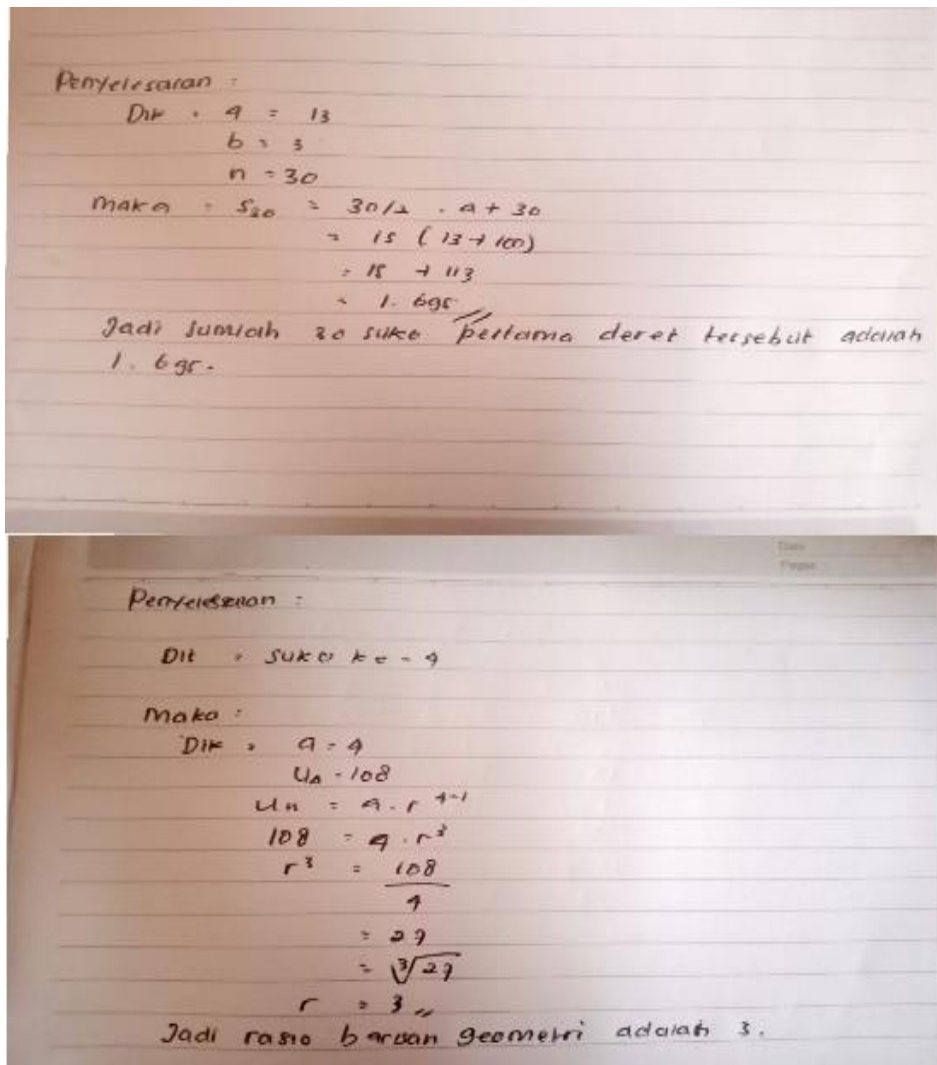 Penyelesaian :
Dik : a = 13
b = 3
n = 30
maka : S30 = 30/2 . a + 30
= 15 ( 13 + 100)
= 15 + 113
= 1. 695
Jadi Jumlah 30 suko pertama deret tersebut adalah
1. 695.
Penyelesaian :
Dit : suku ke - 4
maka :
Dik : a = 4
U4 = 108
Un = a . r 4-1
108 = 4 . r³
r³ = 108
4
= 27
= ³√27
r = 3
Jadi rasio barisan geometri adalah 3.